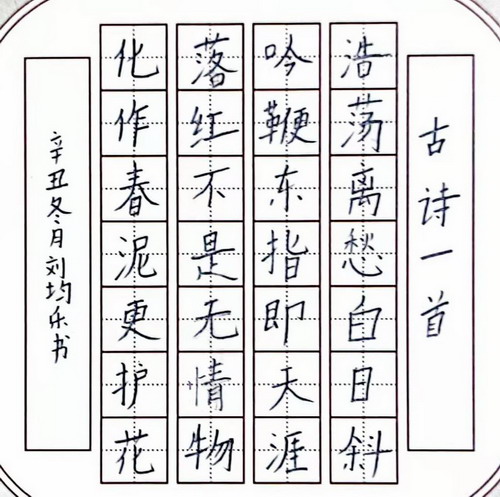 古诗一首
浩荡离愁白日斜
吟鞭东指即天涯
落红不是无情物
化作春泥更护花
辛丑冬月刘均乐书